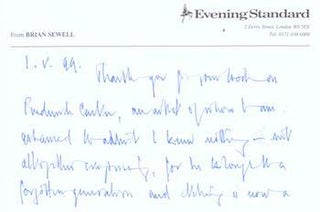 Evening Standard
2 Derry Street, London W8 5EE
From BRIAN SEWELL
Tel: 0171-938 6000
1. V. 99.
Thank you for your book on
an artist of whom I am
ashamed to admit I know nothing — not
altogether surprising, for he belongs to a
forgotten generation and etching is now a